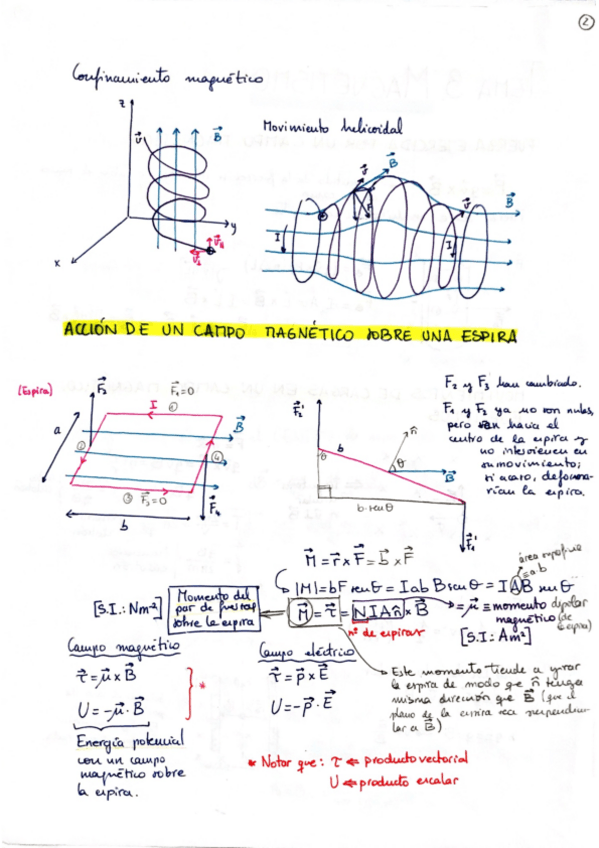 2
Confinamiento magnético
Z
v⃗
B⃗
y
x
Movimiento helicoidal
v⃗
B⃗
F
B⃗
v⃗
I
I
ACCIÓN DE UN CAMPO MAGNÉTICO SOBRE UNA ESPIRA
(Espira)
F⃗₁=0
I
①
a
B⃗
②
④
③ F⃗₃=0
F⃗₄
b
θ
b
n̂
θ
B⃗
b·senθ
F₂ y F₃ han cambiado.
F₁ y F₂ ya no son nulas,
pero van hacia el
centro de la espira y
no intervienen en
su movimiento;
si acaso, deforma-
rían la espira.
M⃗ = r⃗ x F⃗ = b⃗ x F⃗
|M| = bF senθ = I a b B senθ = I A B senθ
= a·b
[S.I.: Nm⁻²]
Momento del
par de fuerzas
sobre la espira
M⃗ = τ⃗ = N I A n̂ x B⃗
nº de espiras
= μ⃗ ≡ momento dipolar
magnético (de
espira)
[S.I.: Am²]
Campo magnético
τ⃗ = μ⃗ x B⃗
U = -μ⃗ · B⃗
*
Energía potencial
con un campo
magnético sobre
la espira.
Campo eléctrico
τ⃗ = p⃗ x E⃗
U = -p⃗ · E⃗
Este momento tiende a girar
la espira de modo qe n̂ tenga
misma dirección qe B⃗ (que el
plano de la espira sea perpendicu-
lar a B⃗)
* Notar que: τ ← producto vectorial
U ← producto escalar